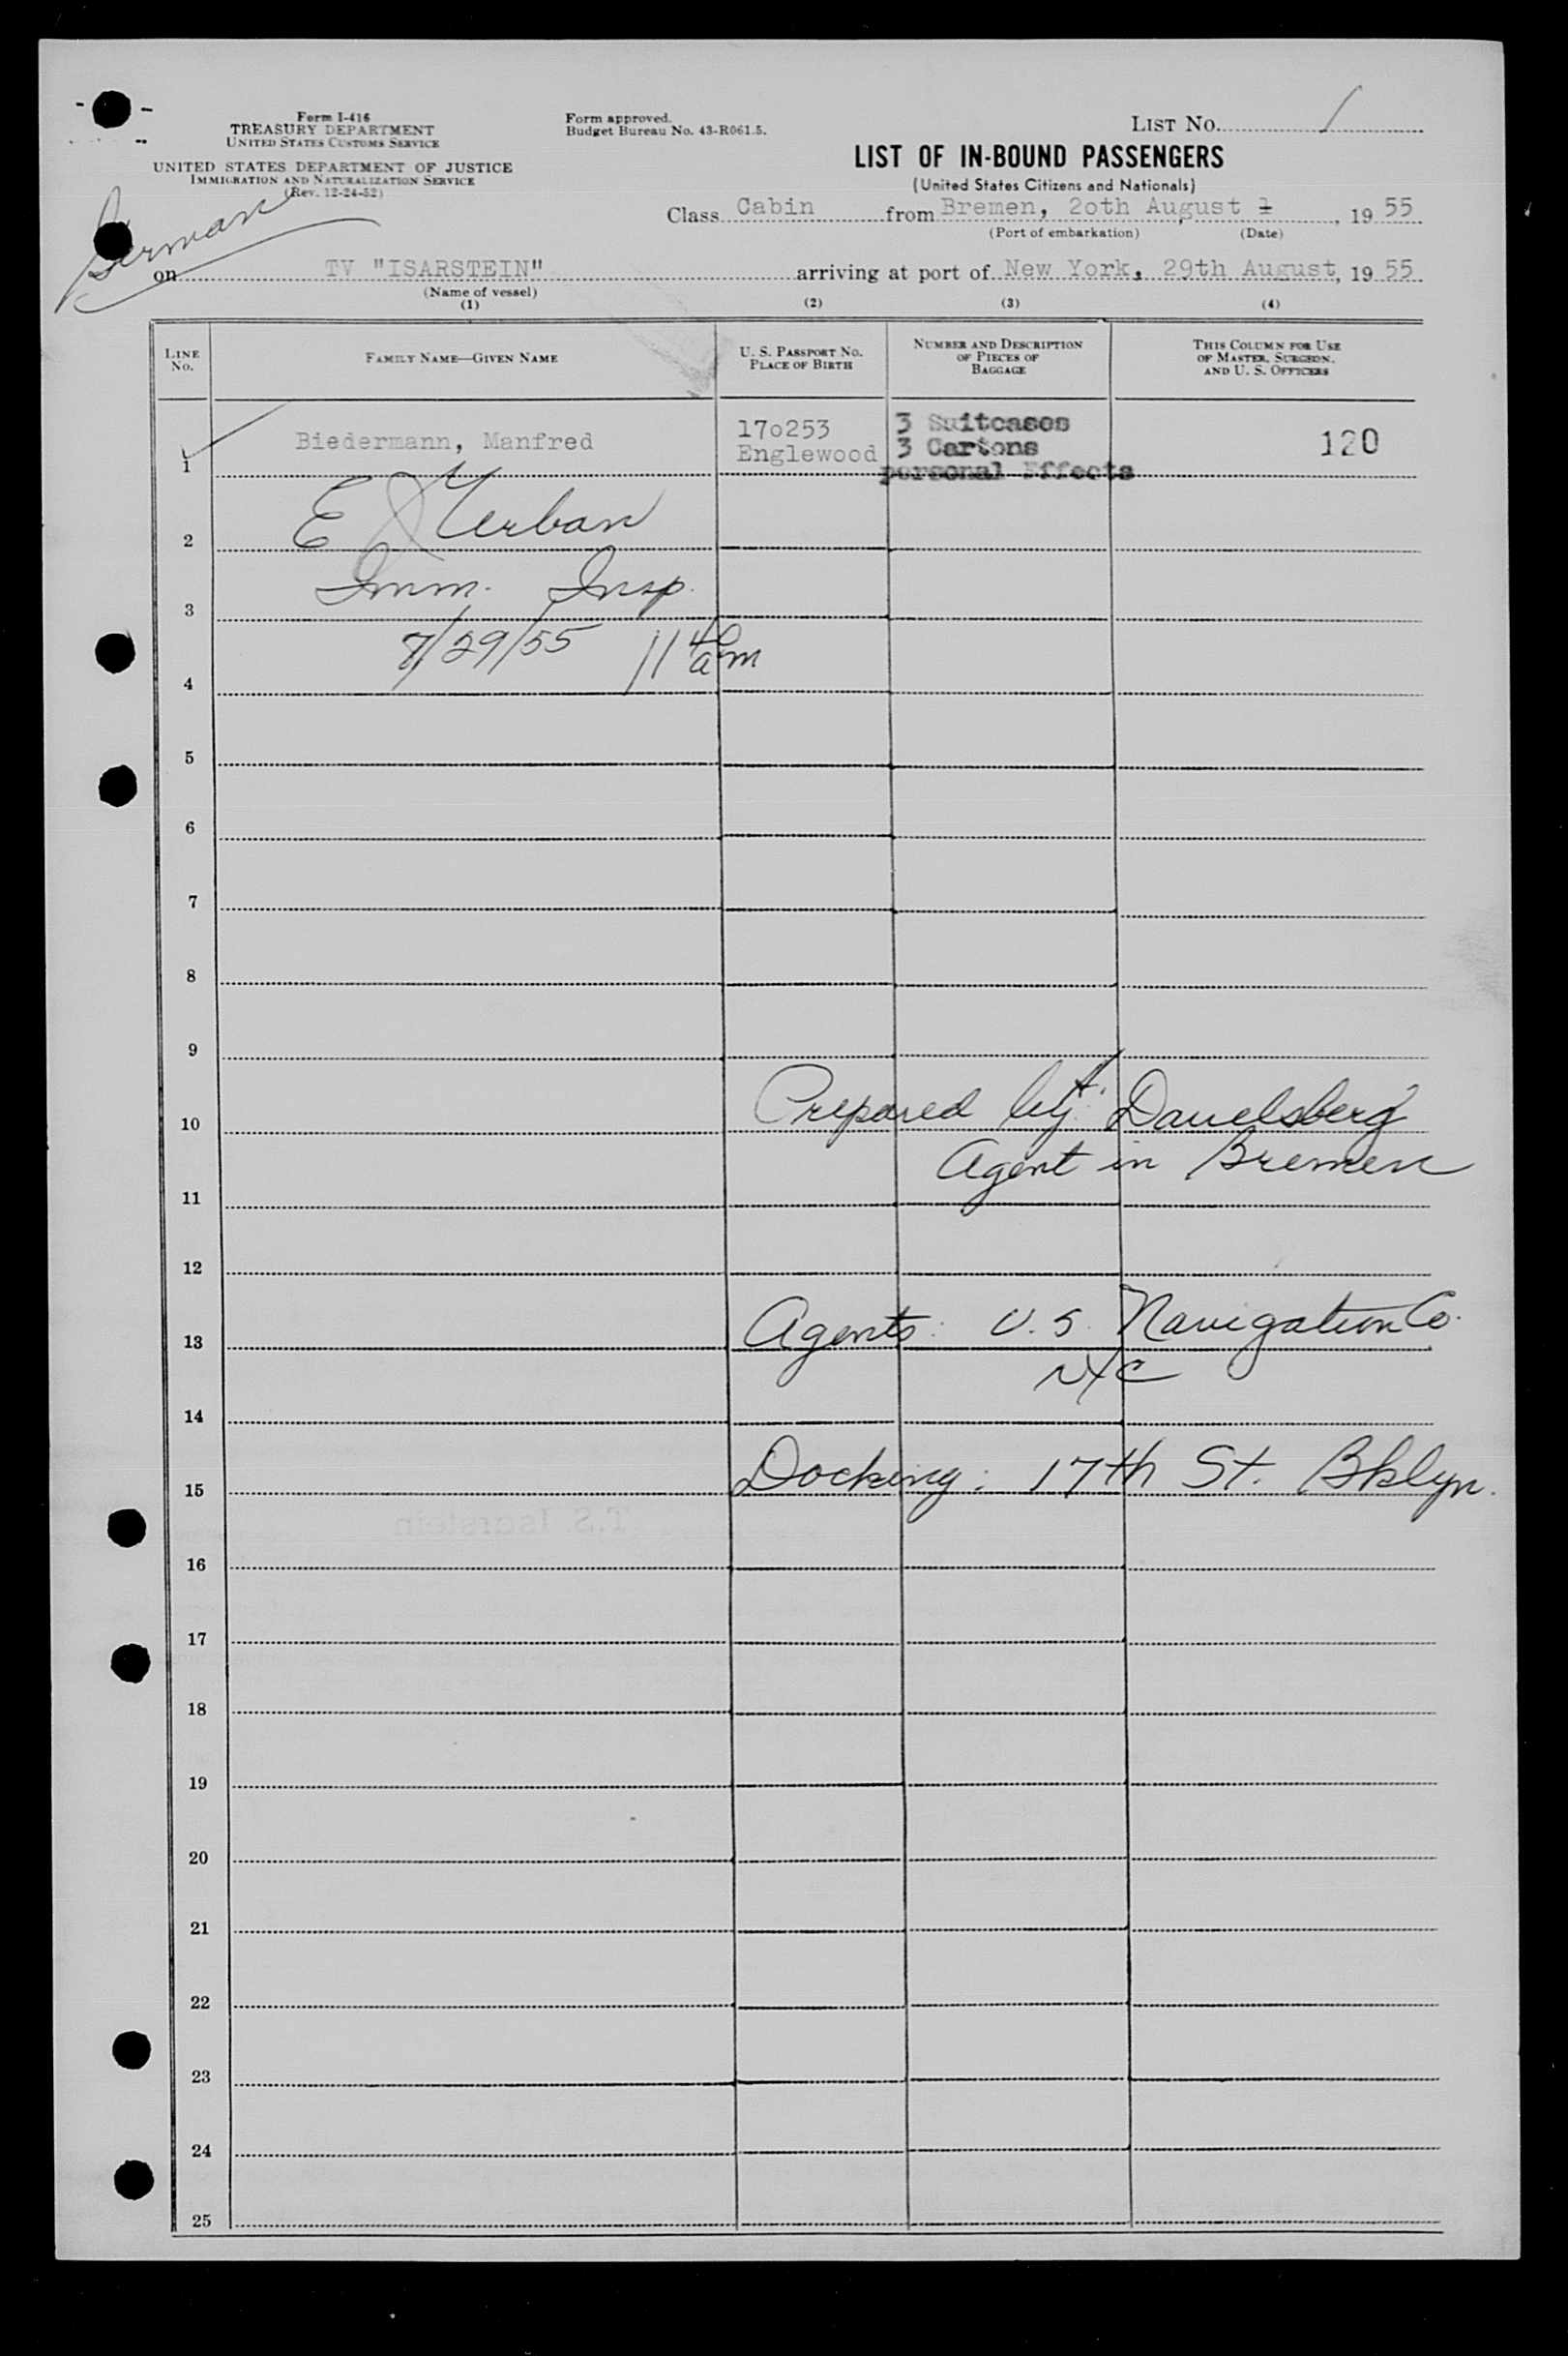 Form I-416
TREASURY DEPARTMENT
UNITED STATES CUSTOMS SERVICE
UNITED STATES DEPARTMENT OF JUSTICE
IMMIGRATION AND NATURALIZATION SERVICE
(Rev. 12-24-52)
Form approved.
Budget Bureau No. 43-R061.5.
LIST No. 1
LIST OF IN-BOUND PASSENGERS
(United States Citizens and Nationals)
German
Class Cabin from Bremen, 2oth August 1, 19 55
(Port of embarkation) (Date)
on TV "ISARSTEIN" arriving at port of New York, 29th August, 19 55
(Name of vessel)
(1) (2) (3) (4)
LINE No. FAMILY NAME—GIVEN NAME U. S. PASSPORT No. PLACE OF BIRTH NUMBER AND DESCRIPTION OF PIECES OF BAGGAGE THIS COLUMN FOR USE OF MASTER, SURGEON, AND U. S. OFFICERS
1 Biedermann, Manfred 17o253 Englewood 3 Suitcases 3 Cartons personal Effects 120
2 E Urban
3 Imm. Insp.
4 8/29/55 11 40 am
5
6
7
8
9
10 Prepared by: Danelsberg
11 Agent in Bremen
12
13 Agents: U.S. Navigation Co.
14 NYC
15 Docking: 17th St. Bklyn.
T.S. Isarstein
16
17
18
19
20
21
22
23
24
25